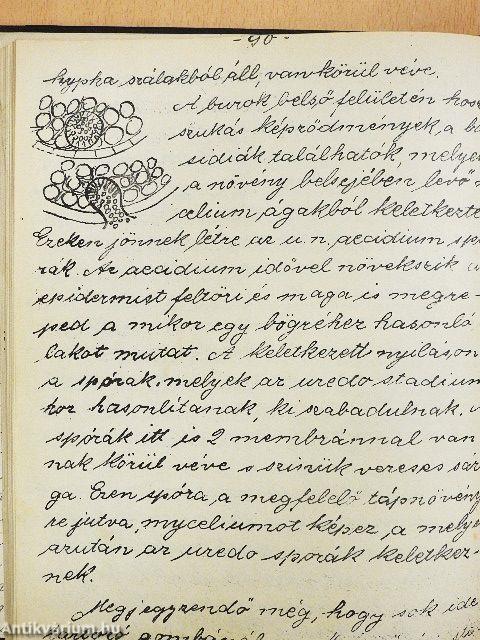 - 90 -
hypha szálakból áll, van körül véve.
A burok belső felületén hosz
szukás képződmények, a ba
sidiák találhatók, melyek
a növény belsejében levő
celium ágakból keletkezte
Ezeken jönnek létre az u. n. aecidium spo
rák. Az aecidium idővel növekszik
epidermist feltöri és maga is megre-
ped, a mikor egy bögréhez hasonló
lakot mutat. A keletkezett nyíláson
a spórák, melyek az uredo stadium
hoz hasonlítanak, ki szabadulnak.
spórák itt is 2 membránnal van
nak körül véve s színük vereses sár
ga. Ezen spóra, a megfelelő tápnövény
re jutva, myceliumot képez, a mely
azután az uredo spórák keletkez-
nek.
Megjegyzendő még, hogy sok ide
Antikvárium.hu